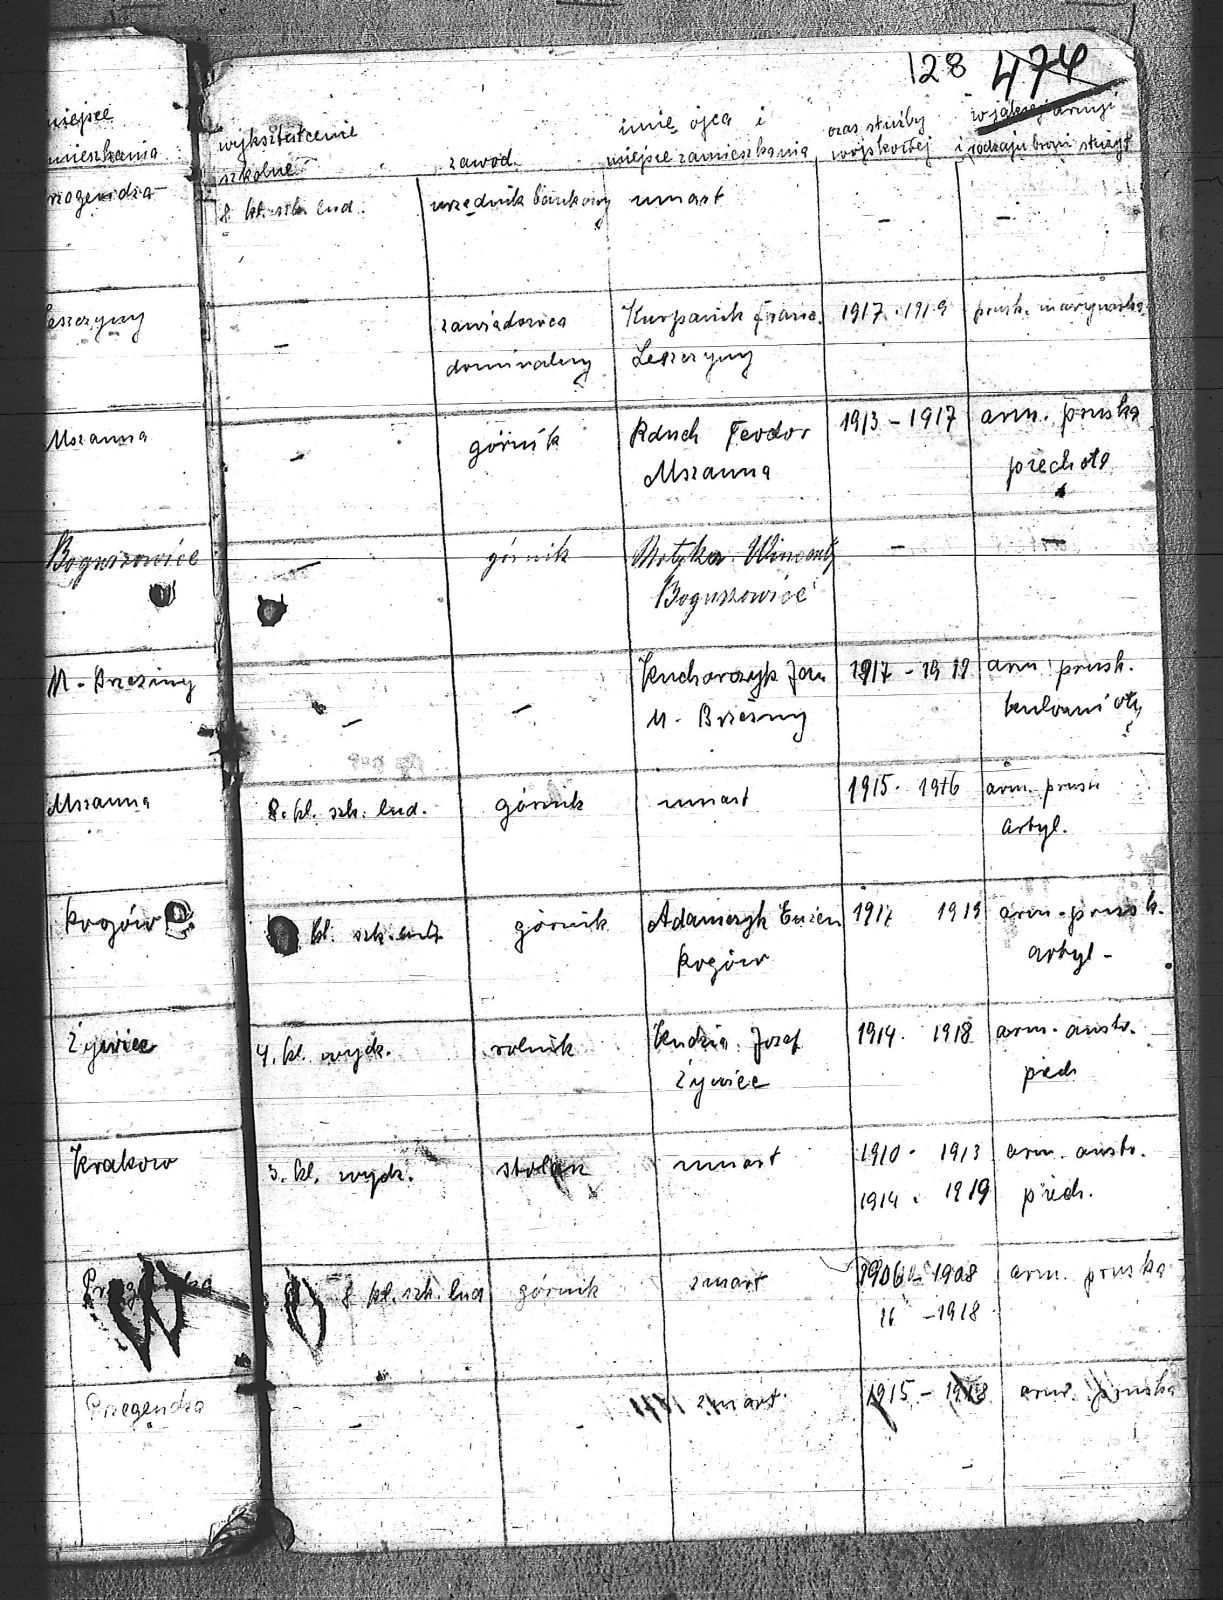 128 474
miejsce
zamieszkania
wykształcenie
szkolne
zawód
imię ojca i
miejsce zamieszkania
czas służby
wojskowej
w jakiej armji
i rodzaju broni służył
8 kl. szk. lud. urzędnik bankowy umarł - -
- zawiadowca Kurpanik Franc. 1917 - 1919 prusk. marynarka
dominalny Leszczyny
Mszanna - górnik Rduch Teodor 1913 - 1917 arm. pruska
Mszanna piechota
Boguszowice - górnik Motyka Wincenty - -
Boguszowice
M - Brzeziny - - Kucharczyk Jan 1917 - 1919 arm. prusk.
M - Brzeziny
Mszanna 8. kl. szk. lud. górnik umarł 1915 - 1916 arm. prusk
artyl.
Rogów kl. szk. lud górnik Adamczyk 1917 1919 arm. prusk.
Rogów artyl -
Żywiec 4. kl. wydz. rolnik Kudzia Józef 1914 - 1918 arm. austr.
Żywiec piech
Krakow 3. kl. wydz. stolarz umarł 1910 - 1913 arm. austr.
1914 - 1919 piech.
8 kl. szk. lud górnik zmarł 1906 - 1908 arm. pruska
16 - 1918
Przegendza - zmarł 1915 - 1918 arm. pruska